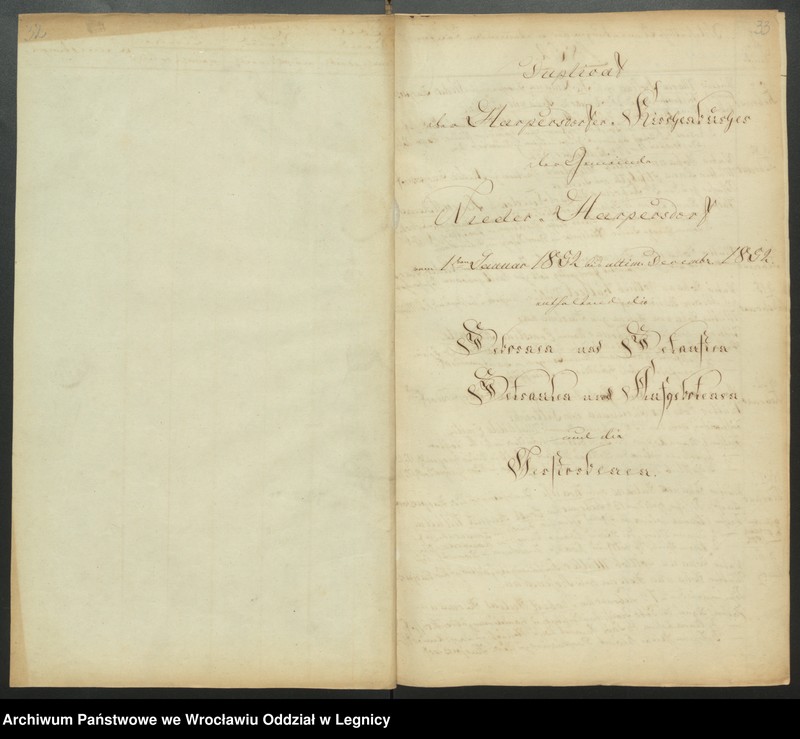 32
33
Duplicat
der Harpersdorfer Kirchenbücher
der Gemeinde
Nieder Harpersdorf
vom 1ten Januar 1852 bis ultim. Decembr 1852.
enthaltend die
Gebornen und Getauften
Getrauten und Aufgebotenen
und die
Verstorbenen.
Archiwum Państwowe we Wrocławiu Oddział w Legnicy